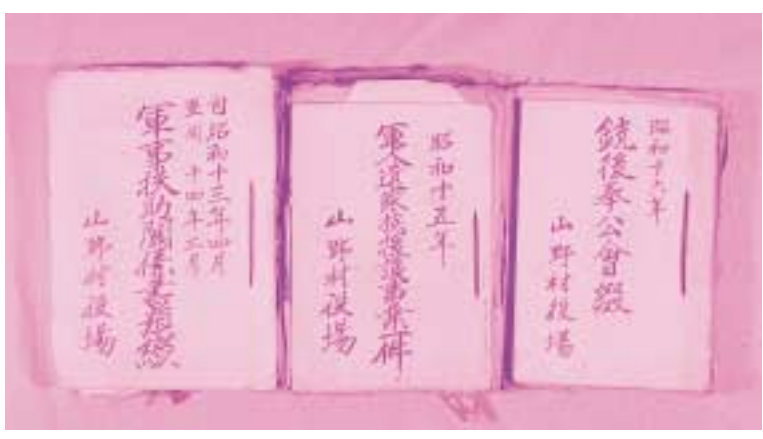 昭和十六年
銃後奉公會綴
山野村役場
昭和十五年
軍人遺家族援護事業一件
山野村役場
自昭和十三年四月
至同 十四年三月
軍事扶助関係書類綴
山野村役場